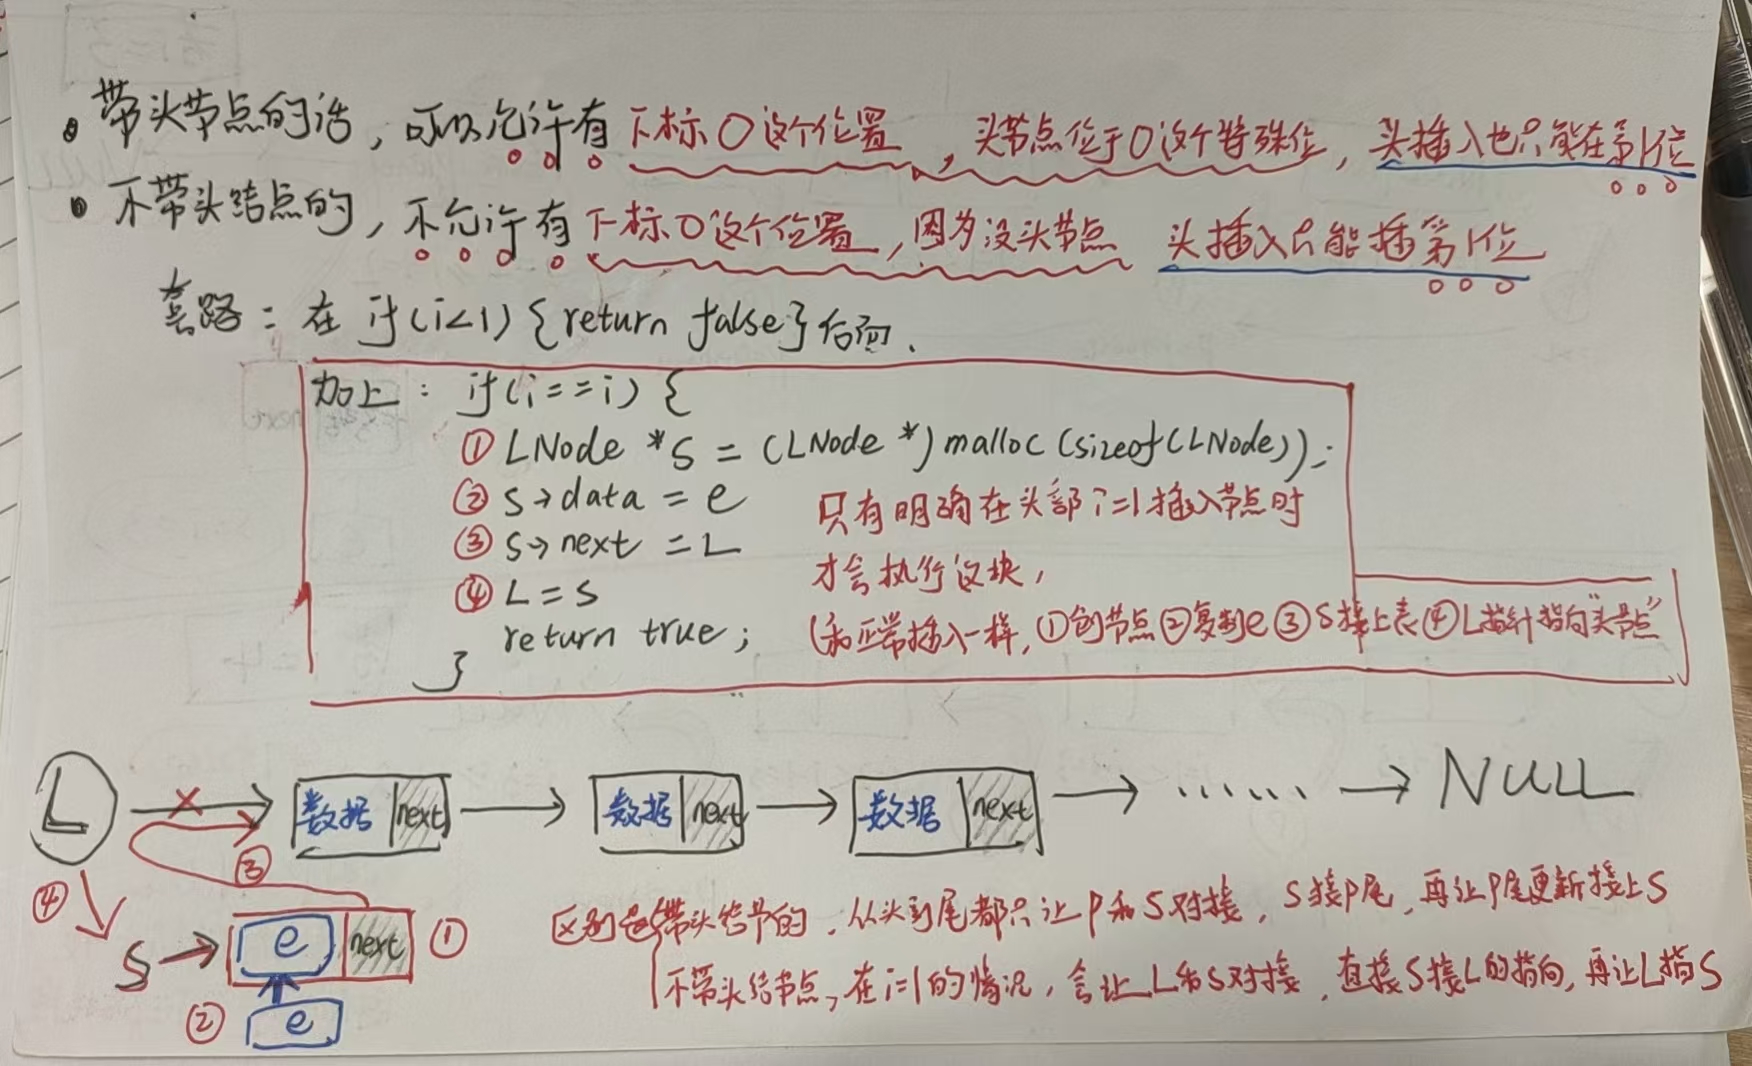 带头节点的话，可以允许有下标0这个位置，头节点位于0这个特殊位，头插入也只能在第1位
不带头结点的，不允许有下标0这个位置，因为没头节点 头插入只能插第1位
套路：在 if(i<1) {return false} 后面.
加上： if(i==i) {
① LNode *S = (LNode *) malloc (sizeof(LNode));
② S→data = e
③ S→next = L
④ L=S
return true;
}
只有明确在头部i=1插入节点时
才会执行这块，
(和正常插入一样，①创节点②复制e③S接上表④L指针指向"头节点"
L
数据 next
数据 next
数据 next
NULL
③
④
S
e next
①
②
e
区别 带头结节的，从头到尾都只让P和S对接，S接P尾，再让P尾更新接上S
不带头结节点，在i=1的情况，会让L和S对接，直接S接L的指向，再让L指S